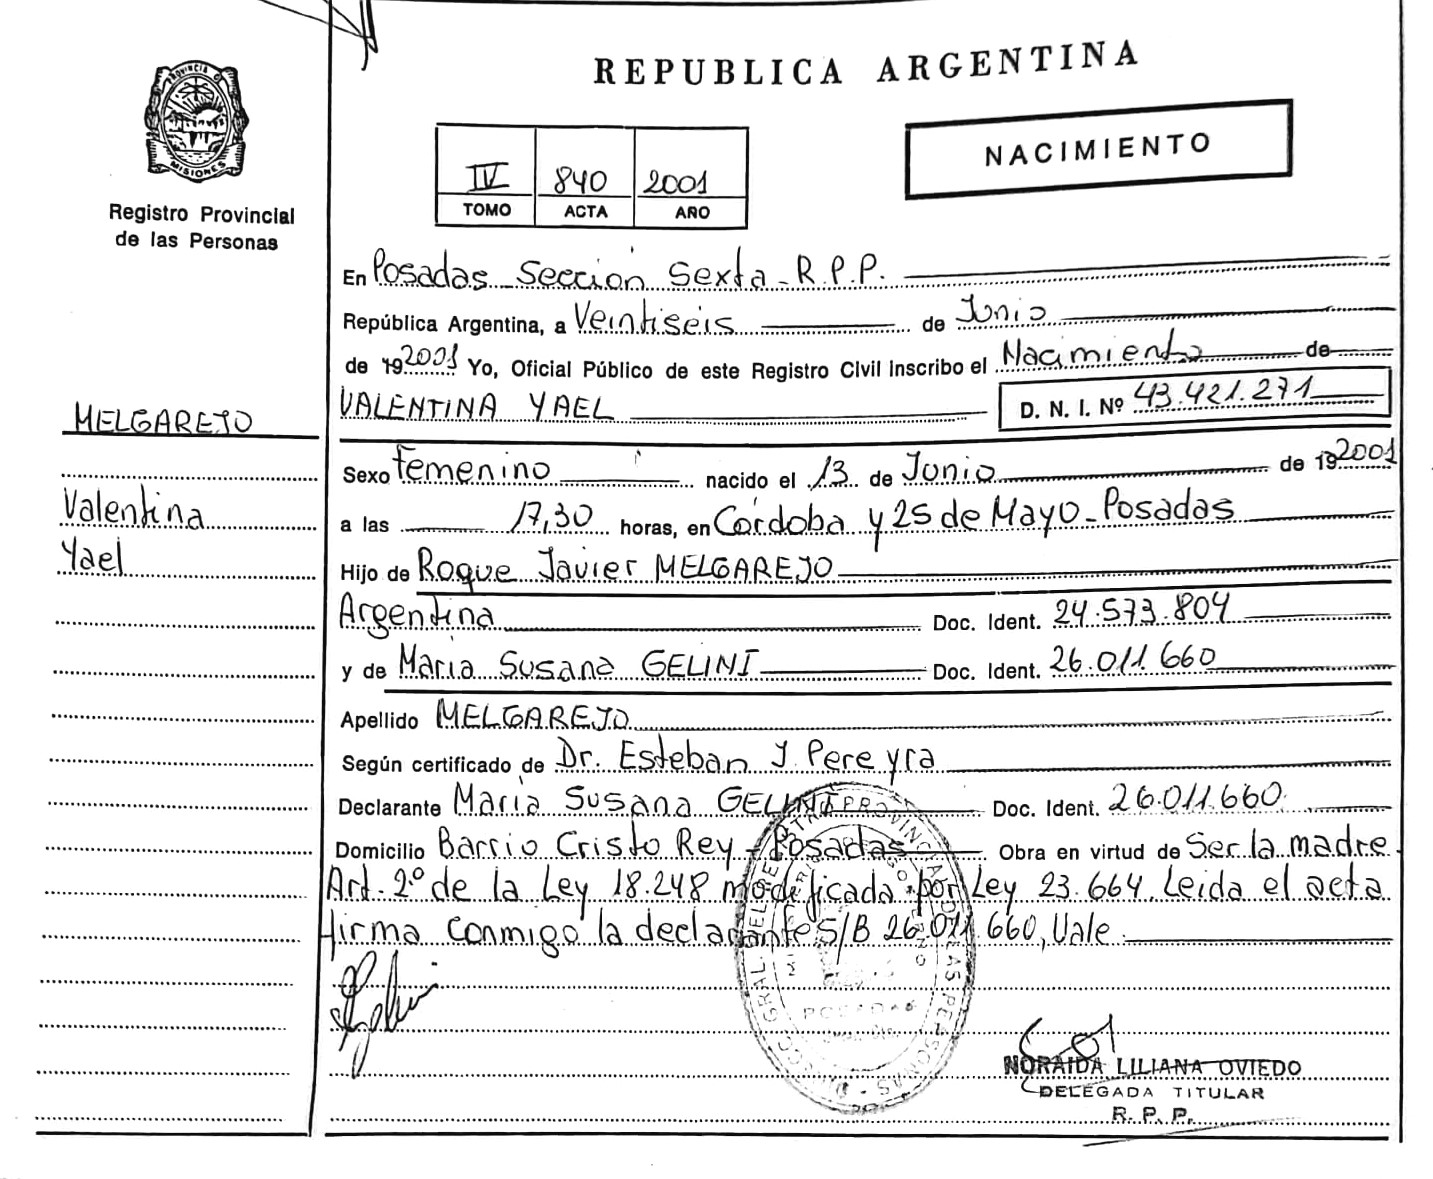 REPUBLICA ARGENTINA
PROVINCIA D
MISIONES
Registro Provincial
de las Personas
NACIMIENTO
IV 840 2001
TOMO ACTA AÑO
En Posadas Sección Sexta - R.P.P.
República Argentina, a Veintiseis de Junio
de 192001 Yo, Oficial Público de este Registro Civil inscribo el Nacimiento de
VALENTINA YAEL D. N. I. Nº 43.421.271
MELGAREJO
Valentina
Yael
Sexo Femenino nacido el 13 de Junio de 192001
a las 17,30 horas, en Córdoba y 25 de Mayo - Posadas
Hijo de Roque Javier MELGAREJO
Argentina Doc. Ident. 24.573.804
y de María Susana GELINI Doc. Ident. 26.011.660
Apellido MELGAREJO
Según certificado de Dr. Esteban J. Pereyra
Declarante María Susana GELINI Doc. Ident. 26.011.660
Domicilio Barrio Cristo Rey - Posadas Obra en virtud de Ser la madre
Art. 2º de la Ley 18.248 modificada por Ley 23.664. Leida el acta
firma conmigo la declarante S/B 26.011.660, Vale
NORAIDA LILIANA OVIEDO
DELEGADA TITULAR
R. P. P.